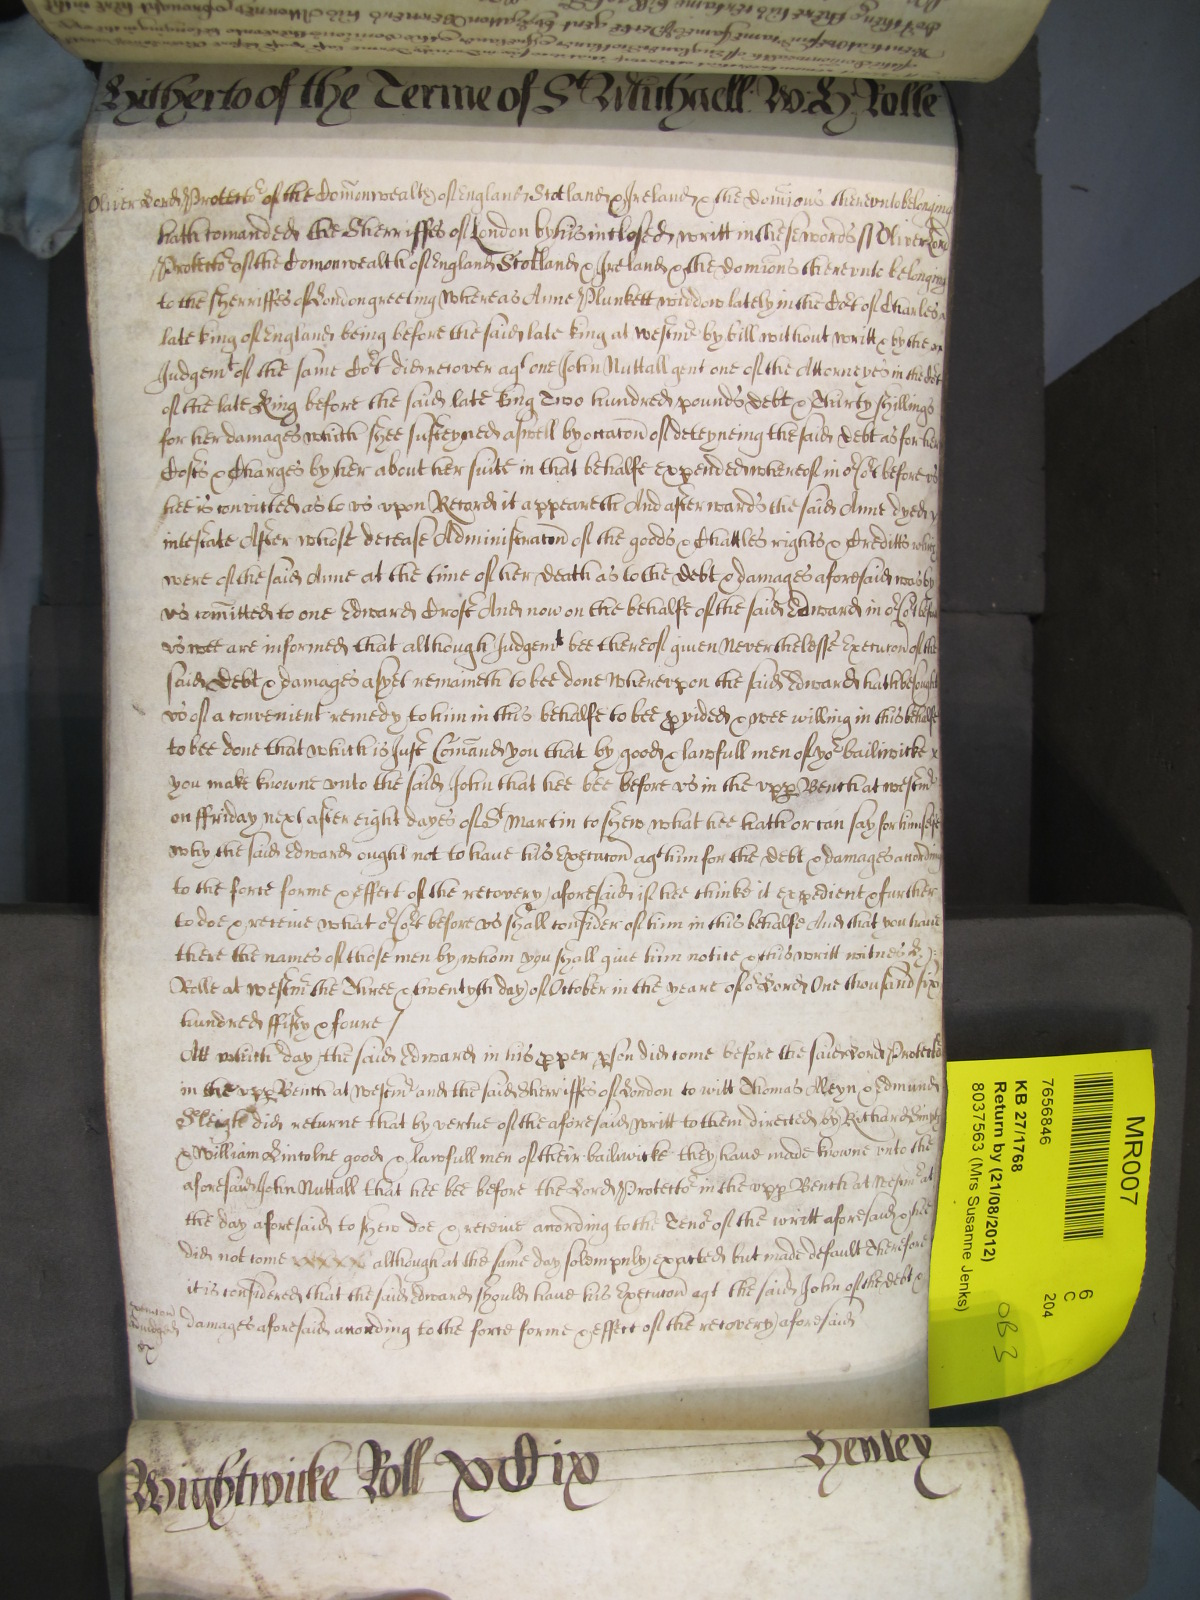 Hitherto of the Terme of St Michaell W. H. Rolle
Oliver Lord Protector of the Com̄onwealth of England Scotland & Ireland & the Dominions therevnto belonging
hath com̄anded the Sherriffes of London by his inclosed writt in these words ss Oliver Lord
Protector of the Com̄onwealth of England Scotland & Ireland & the domin̄ons therevnto belonging
to the sherriffes of London greeting Whereas Anne Plunkett widdow lately in the Cort of Charles
late king of England being before the said late king at Westmr by bill without writt & by the
Judgemt of the same Cort did recover agt one John Nuttall gent one of the Attorneyes in the Cort
of the late King before the said late king Two hundred pounds debt & Thirty shillings
for her damages which shee susteyned aswell by occac̄on of deteyneing the said debt as for her
Costs & Charges by her about her suite in that behalfe expended whereof in or Cort before vs
hee is convicted as to vs vpon Record it appeareth And afterwards the said Anne dyed
intestate After whose decease Administrac̄on of the goods & Chattles rights & Creditts which
were of the said Anne at the time of her death as to the debt & damages aforesaid was by
vs com̄itted to one Edward Crost And now on the behalfe of the said Edward in or Cort before
vs wee are informed that although Judgemt bee thereof given Neverthelesse Execuc̄on of the
said debt & damages as yet remaineth to bee done Wherevpon the said Edward hath besought
vs of a convenient remedy to him in this behalfe to bee ꝓvided & wee willing in this behalfe
to bee done that which is Just Com̄and you that by good & lawfull men of yor bailiwicke
you make knowne vnto the said John that hee bee before vs in the vpꝑ Bench at Westmr
on ffriday next after eight dayes of St Martin to shew what hee hath or can say for himselfe
why the said Edward ought not to have his Execuc̄on agt him for the debt & damages according
to the force forme & effect of the recovery aforesaid if hee thinke it expedient & further
to doe & receive what or Cort before vs shall consider of him in this behalfe And that you have
there the names of those men by whom you shall give him notice & this writt witnes H.
Rolle at Westmr the Three & twentyth day of October in the yeare of or Lord One thousand six
hundred ffifty & foure /
Att which day the said Edward in his ꝓper ꝑson did come before the said Lord Protector
in the vpꝑ Bench at Westmr and the said Sherriffes of London to witt Thomas Aleyn & Edmund
Sleigh did returne that by vertue of the aforesaid writt to them directed by Richard
& William Lincolne good & lawfull men of their bailiwicke they have made knowne vnto the
aforesaid John Nuttall that hee bee before the Lord Protector in the vpꝑ Bench at Westmr at
the day aforesaid to shew doe & receive according to the Tenor of the writt aforesaid & hee
did not come xxxxx although at the same day solempnly exacted but made default Therefore
it is considered that the said Edward should have his Execuc̄on agt the said John of the debt &
damages aforesaid according to the force forme & effect of the recovery aforesaid
Wightwicke Roll
Henley
MR007
6
C
204
7656846
KB 27/1768
Return by (21/08/2012)
8037563 (Mrs Susanne Jenks)
OB 3